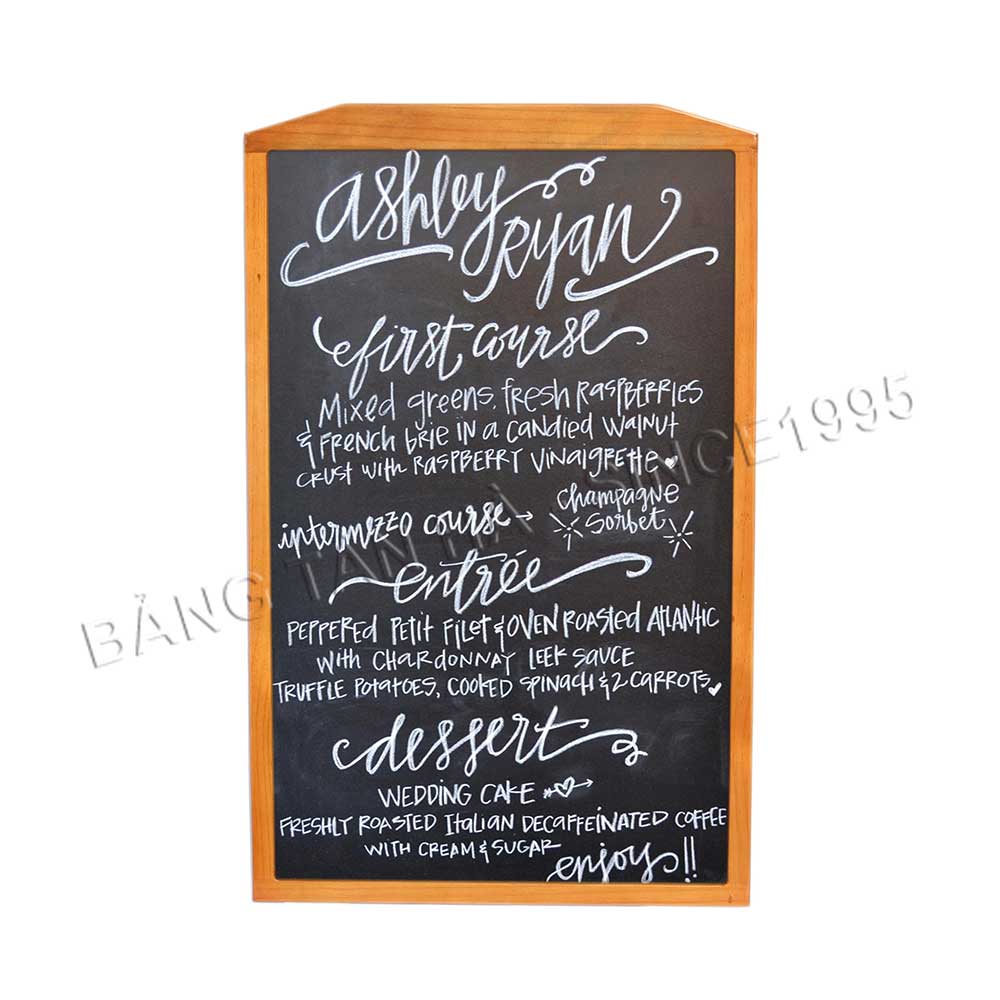 ashley
Ryan
first course
Mixed greens, fresh Raspberries
& French brie in a candied walnut
crust with Raspberry vinaigrette
intermezzo course → champagne
sorbet
entrée
Peppered Petit Filet & Oven Roasted Atlantic
with Chardonnay Leek Sauce
Truffle Potatoes, Cooked Spinach & 2 Carrots
dessert
WEDDING CAKE
FRESHLY ROASTED Italian DECAFFEINATED COFFEE
WITH CREAM & SUGAR
enjoy!!
BẢNG TÂN HÀ , SINCE1995